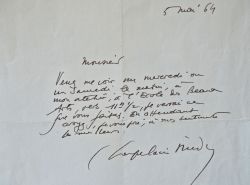 5 mai 64
Monsieur
Venez me voir un mercredi ou
un samedi, le matin, à
mon atelier, à l'Ecole des Beaux
Arts, vers 11h 1/2, je verrai ce
que vous faites. En attendant
croyez, je vous prie, à mes sentiments